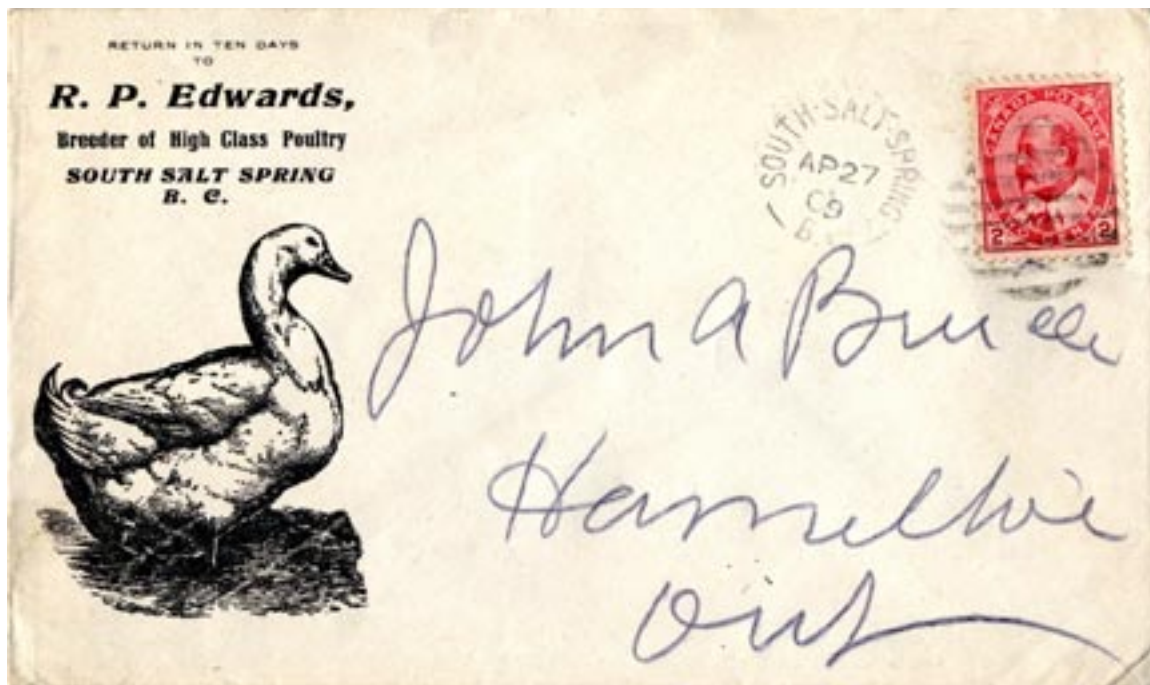 RETURN IN TEN DAYS
TO
R. P. Edwards,
Breeder of High Class Poultry
SOUTH SALT SPRING
B. C.
SOUTH·SALT·SPRING
AP 27
09
B
CANADA POSTAGE
2 2
John A Bruce
Hamilton
Ont